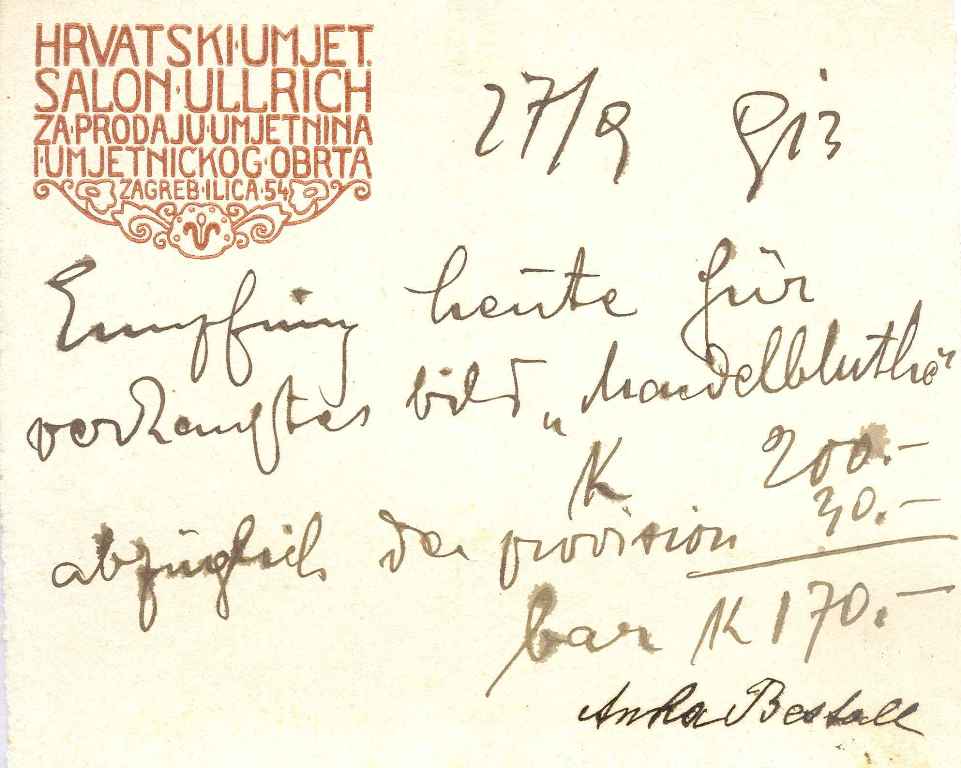 HRVATSKI·UMJET.
SALON·ULLRICH
ZA·PRODAJU·UMJETNINA
I·UMJETNICKOG·OBRTA
ZAGREB·ILICA·54
27/9 913
Empfing heute für
verkauftes bild „Mandelblüthe"
K 200.-
abzüglich der provision 30.-
bar K 170.-
Anka Bestall